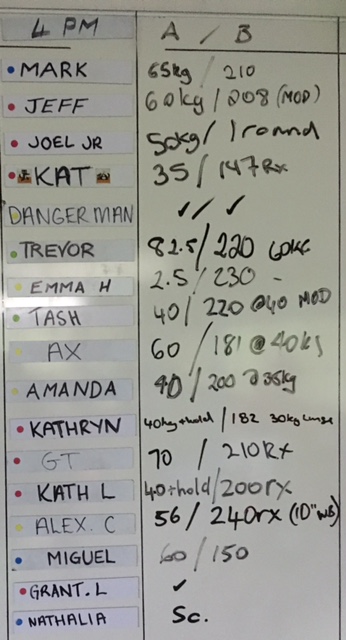 4 PM A / B
MARK 65kg / 210
JEFF 60kg / 208 (MOD)
JOEL JR 50kg / 1 round
KAT 35 / 147Rx
DANGERMAN ✓ / ✓ / ✓
TREVOR 82.5 / 220 60KG
EMMA H 2.5 / 230 -
TASH 40 / 220 @40 MOD
AX 60 / 181 @ 40kg
AMANDA 40 / 200 @35kg
KATHRYN 40kg+hold / 182 30kg Lunge
GT 70 / 210RX
KATH L 40+hold / 200rx
ALEX. C 56 / 240rx (10"WB)
MIGUEL 60 / 150
GRANT. L ✓
NATHALIA Sc.